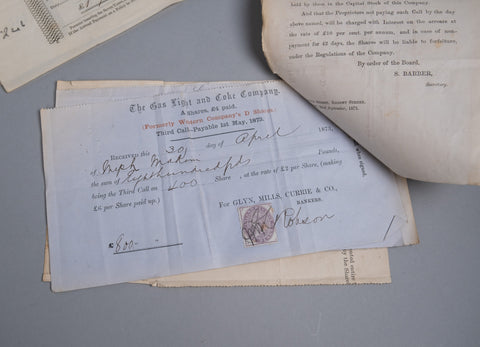 held by them in the Capital Stock of this Company.
And that the Proprietors not paying such Call by the day
above named, will be charged with Interest on the arrears at
the rate of £10 per cent. per annum, and in case of non-
payment for 42 days, the Shares will be liable to forfeiture,
under the Regulations of the Company.
By order of the Board,
S. BARBER,
Secretary.
1873.
The Gas Light and Coke Company.
A shares, £4 paid.
(Formerly Western Company's D Shares.)
Third Call—Payable 1st May, 1873.
RECEIVED this 30 day of April 1873,
of
the sum of Eight hundred Pounds,
being the Third Call on 400 Share , at the rate of £2 per Share, (making
£6 per Share paid up.)
For GLYN, MILLS, CURRIE & CO.,
BANKERS.
£800 Robson